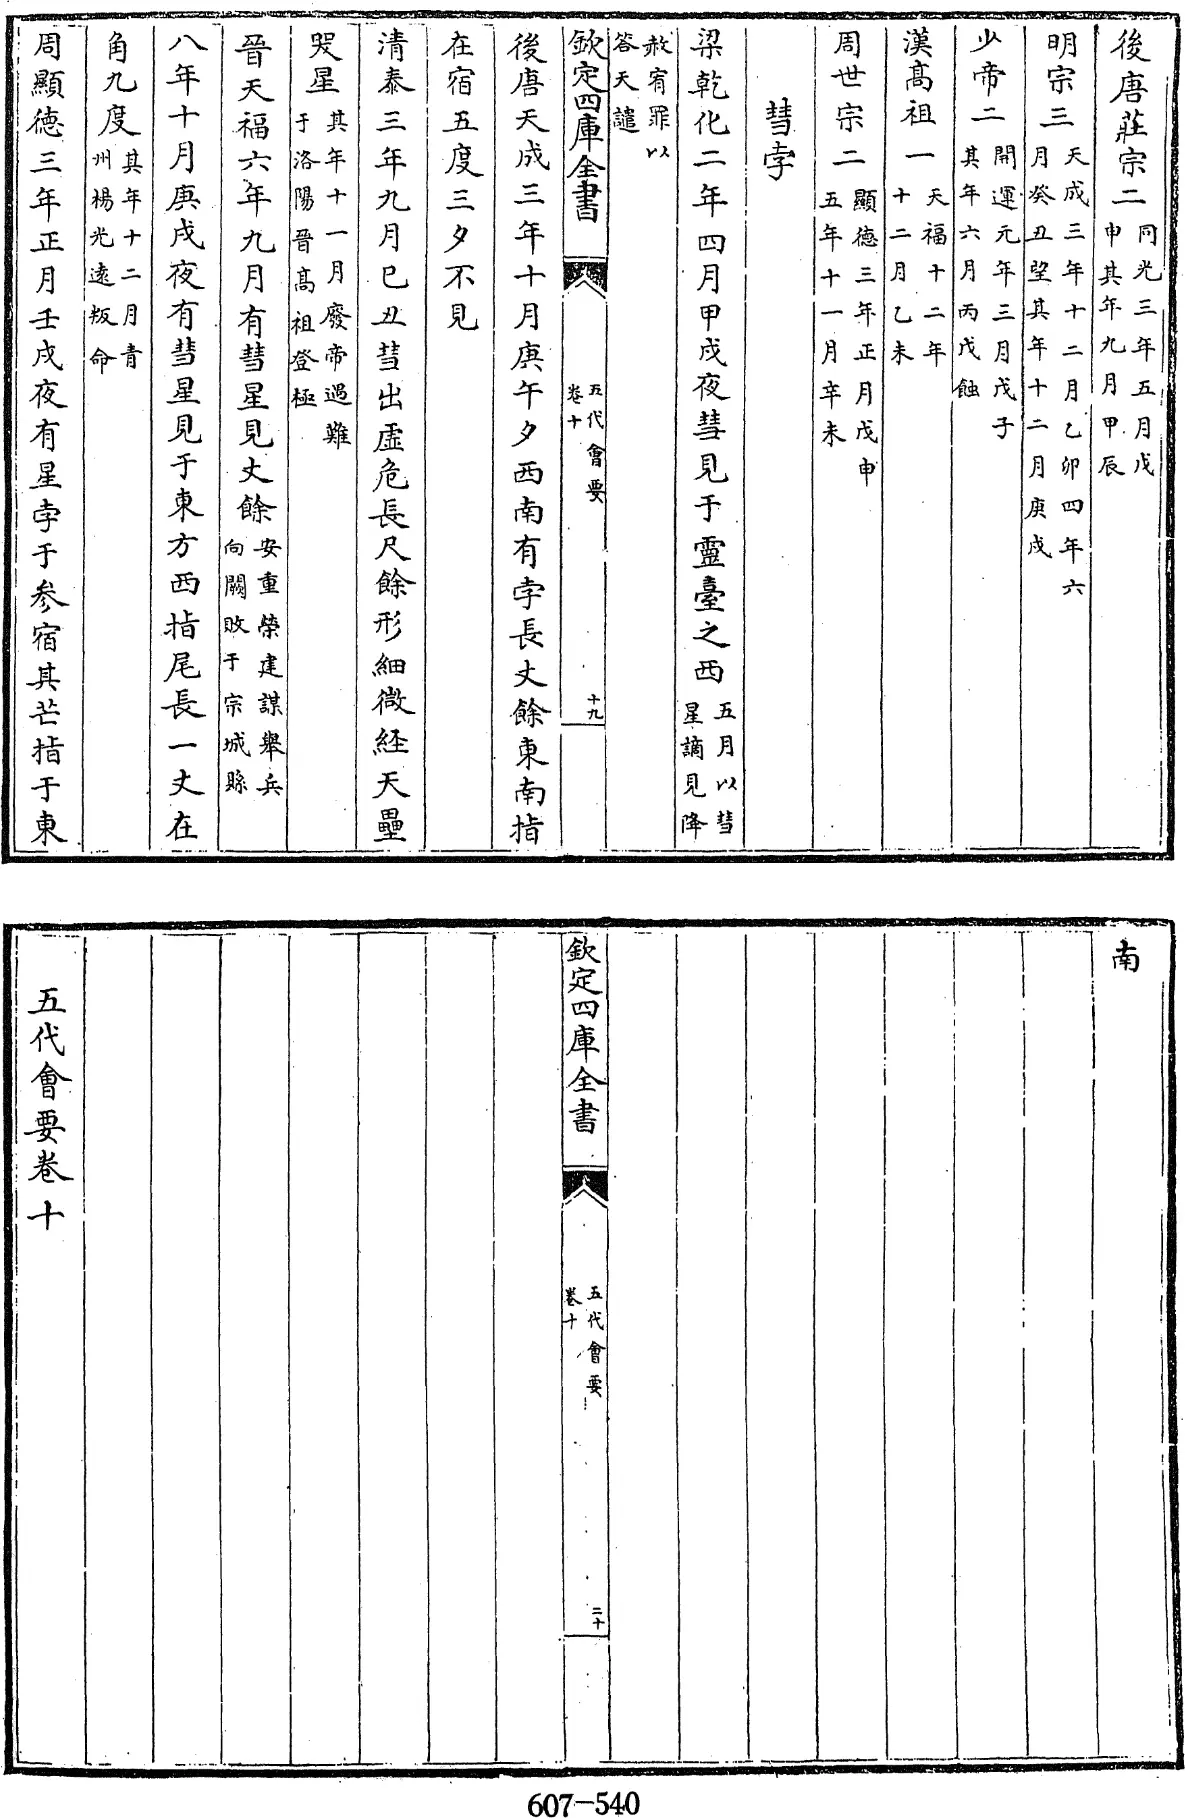 後唐莊宗二同光三年五月戊申其年九月甲辰
明宗三天成三年十二月乙卯四年六月癸丑望其年十二月庚戌
少帝二開運元年三月戊子其年六月丙戌蝕
漢髙祖一天福十二年十二月乙未
周世宗二顯德三年正月戊申五年十一月辛未
彗孛
梁乾化二年四月甲戌夜彗見于靈臺之西五月以彗星謫見降
赦宥罪以答天譴
欽定四庫全書
五代會要
卷十
十九
後唐天成三年十月庚午夕西南有孛長丈餘東南指
在宿五度三夕不見
清泰三年九月已丑彗出虛危長尺餘形細微経天壘
哭星其年十一月廢帝遇難于洛陽晉髙祖登極
晉天福六年九月有彗星見丈餘安重榮建謀舉兵向闕敗于宗城縣
八年十月庚戌夜有彗星見于東方西指尾長一丈在
角九度其年十二月青州楊光遠叛命
周顯德三年正月壬戌夜有星孛于参宿其芒指于東
南
欽定四庫全書
五代會要
卷十
二十
五代會要卷十
607-540